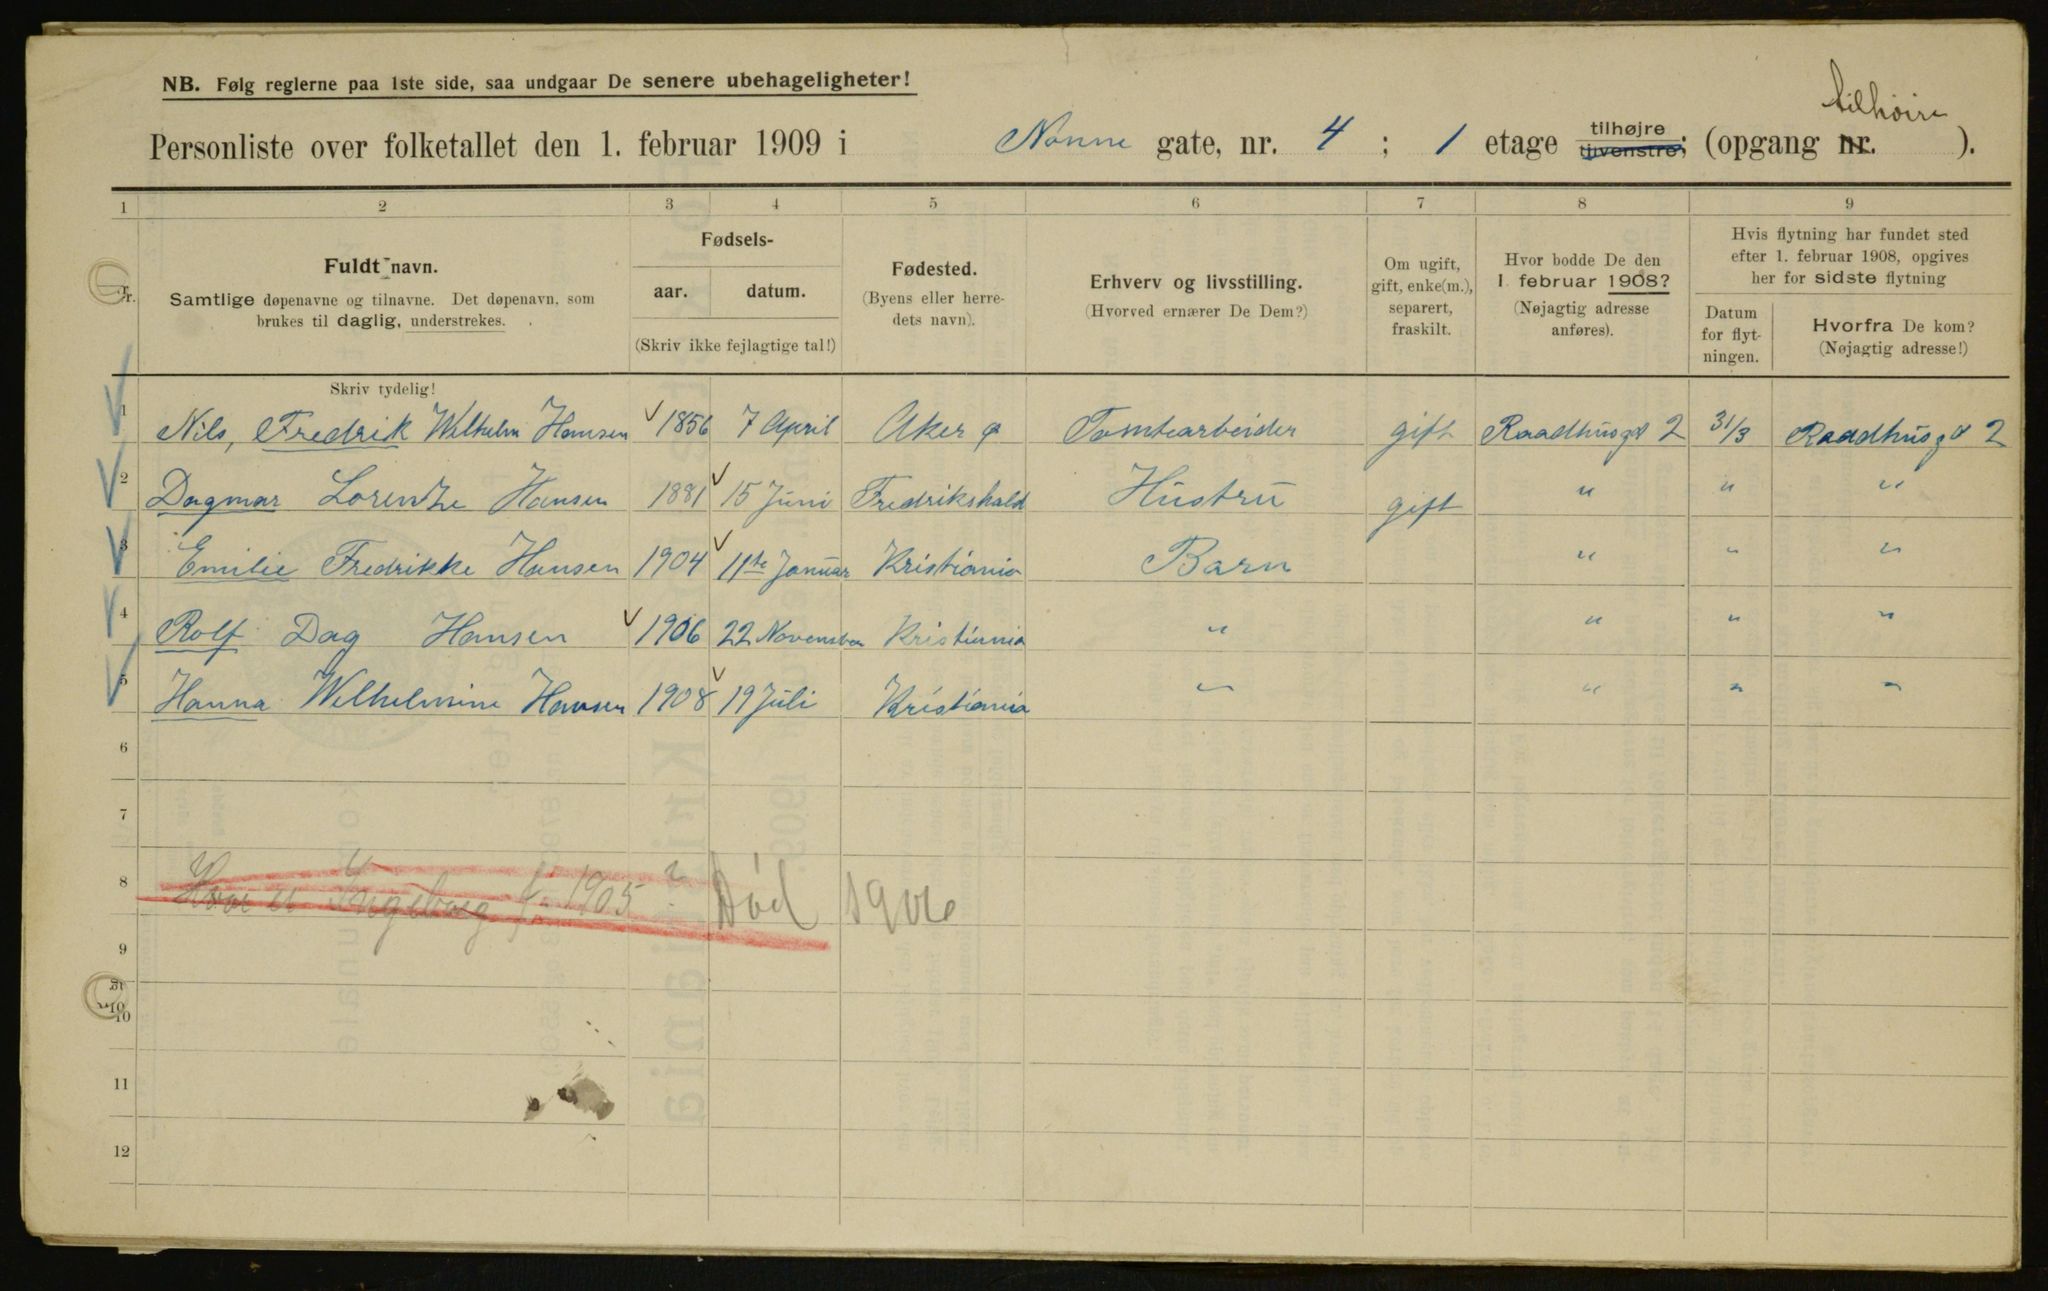 NB. Følg reglerne paa 1ste side, saa undgaar De senere ubehageligheter!
Personliste over folketallet den 1. februar 1909 i Nonne gate, nr. 4 ; 1 etage tilhøjre tilvenstre; (opgang nr. tilhøire ).
1 2 3 4 5 6 7 8 9
Nr.
Fuldt navn.
Samtlige døpenavne og tilnavne. Det døpenavn, som
brukes til daglig, understrekes.
Skriv tydelig!
Fødsels-
aar. datum.
(Skriv ikke fejlagtige tal!)
Fødested.
(Byens eller herre-
dets navn).
Erhverv og livsstilling.
(Hvorved ernærer De Dem?)
Om ugift,
gift, enke(m.),
separert,
fraskilt.
Hvor bodde De den
1. februar 1908?
(Nøjagtig adresse
anføres).
Hvis flytning har fundet sted
efter 1. februar 1908, opgives
her for sidste flytning
Datum
for flyt-
ningen.
Hvorfra De kom?
(Nøjagtig adresse!)
1 Nils, Fredrik Wilhelm Hansen 1856 7 April Aker Tomtearbeider gift Raadhusgd 2 31/3 Raadhusgd 2
2 Dagmar Lorentze Hansen 1881 15 Juni Fredrikshald Hustru gift " " "
3 Emilie Fredrikke Hansen 1904 11te Januar Kristiania Barn " " "
4 Rolf Dag Hansen 1906 22 November Kristiania " " " "
5 Hanna Wilhelmine Hansen 1908 19 Juli Kristiania " " " "
6
7
8 Hvor er Ingeborg f. 1905? Død 1906
9
10
11
12